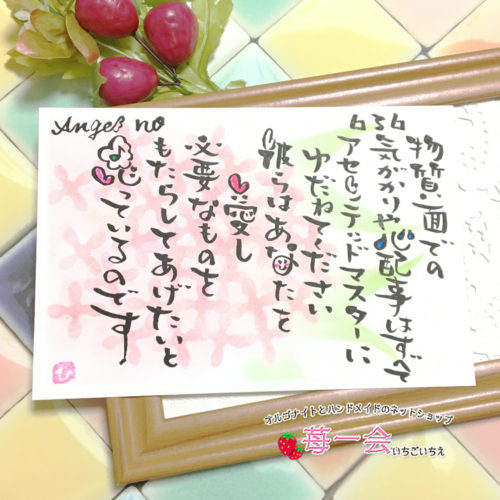 Angel no
物質面での
気がかりや心配事はすべて
アセンデッドマスターに
ゆだねてください
彼らはあなたを
愛し
必要なものを
もたらしてあげたいと
思っているのです
オルゴナイトとハンドメイドのネットショップ
苺一会 いちごいちえ